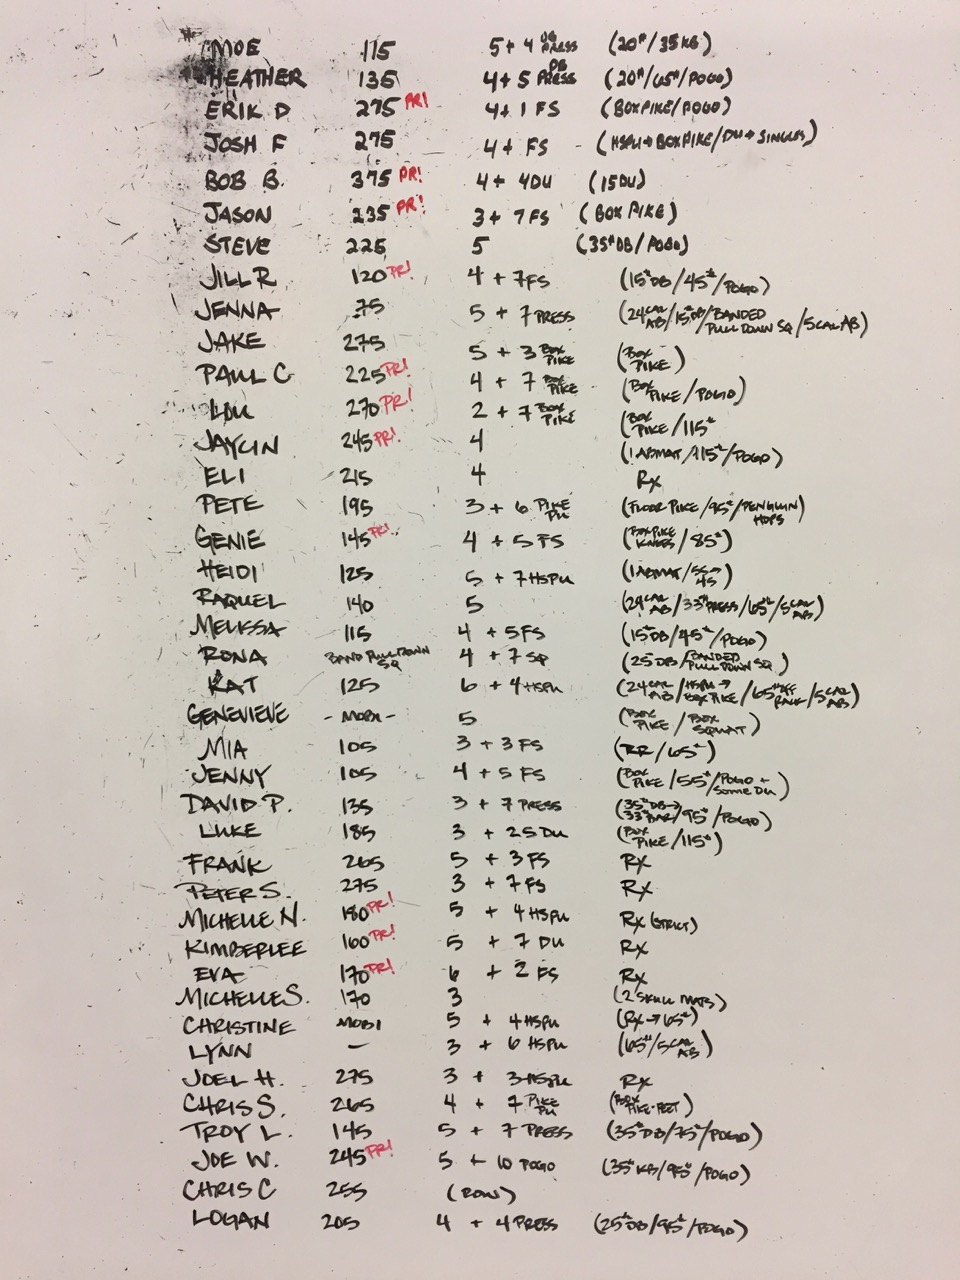 MOE 115 5+4 DB PRESS (20#/35KB)
HEATHER 135 4+5 DB PRESS (20#/65#/POGO)
ERIK D 275 PR! 4+1 FS (BOX PIKE/POGO)
JOSH F 275 4+ FS - (HSPU→BOX PIKE/DU→SINGLES)
BOB B. 375 PR! 4+4DU (15DU)
JASON 235 PR! 3+7FS (BOX PIKE)
STEVE 225 5 (35#DB/POGO)
JILL R 120 PR! 4+7FS (15#DB/45#/POGO)
JENNA 75 5+7 PRESS (24 CAL AB/15#DB/BANDED PULL DOWN SQ/5 CAL AB)
JAKE 275 5+3 BOX PIKE (BOX PIKE)
PAUL C 225 PR! 4+7 BOX PIKE (BOX PIKE/POGO)
LOU 270 PR! 2+7 BOX PIKE (BOX PIKE/115#
JAYLIN 245 PR! 4 (1 ABMAT/115#/POGO)
ELI 215 4 Rx
PETE 195 3+6 PIKE PU (FLOOR PIKE/95#/PENGUIN HOPS)
GENIE 145 PR! 4+5FS (BOX PIKE KNEES/85#)
HEIDI 125 5+7HSPU (1 ABMAT/55→45)
RAQUEL 140 5 (24 CAL AB/33#PRESS/65#/5 CAL AB)
MELISSA 115 4+5FS (15#DB/45#/POGO)
RONA BAND PULL DOWN SQ 4+7 SQ (25DB/BANDED PULL DOWN SQ)
KAT 125 6+4HSPU (24 CAL AB/HSPU→BOX PIKE/65# OFF RACK/5 CAL AB)
GENEVIEVE -MOBI- 5 (BOX PIKE/BOX SQUAT)
MIA 105 3+3FS (RR/65#)
JENNY 105 4+5FS (BOX PIKE/55#/POGO + SOME DU)
DAVID P. 135 3+7 PRESS (35#DB→33#BAR/95#/POGO)
LUKE 185 3+25DU (BOX PIKE/115#)
FRANK 265 5+3FS Rx
PETER S. 275 3+7FS Rx
MICHELLE N. 180 PR! 5+4HSPU Rx (STRICT)
KIMBERLEE 160 PR! 5+7 DU Rx
EVA 170 PR! 6+2 FS Rx
MICHELLE S. 170 3 (2 SKULL MATS)
CHRISTINE MOBI 5+4HSPU (Rx→65#)
LYNN — 3+6 HSPU (65#/5 CAL AB)
JOEL H. 275 3+3HSPU Rx
CHRIS S. 265 4+7 PIKE PU (BOX PIKE-FEET)
TROY L. 145 5+7 PRESS (35#DB/75#/POGO)
JOE W. 245 PR! 5+10 POGO (35#KB/95#/POGO)
CHRIS C 255 (ROW)
LOGAN 205 4+4PRESS (25#DB/95#/POGO)